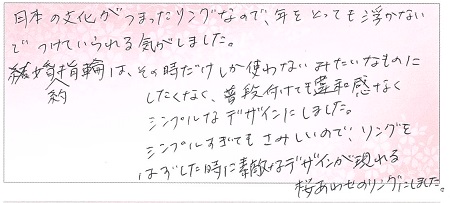 日本の文化がつまったリングなので、年をとっても浮かない
でつけていられる気がしました。
結婚指輪は、その時だけしか使わないみたいなものに
約
したくなく、普段付けても違和感なく
シンプルなデザインにしました。
シンプルすぎてもさみしいので、リングを
はずした時に素敵なデザインが現れる
桜あわせのリングにしました。